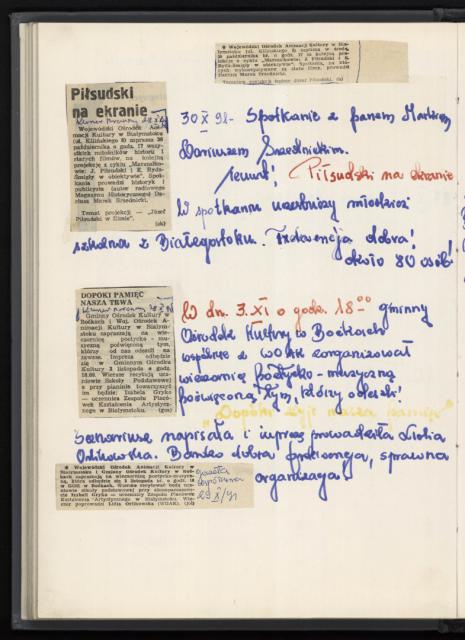 • Wojewódzki Ośrodek Animacji Kultury w Bia-
łymstoku (ul. Kilińskiego 8) zaprasza w środę,
30 października br. o godz. 17 na kolejną pro-
jekcję z cyklu „Marszałkowie: J. Piłsudski i E.
Rydz-Śmigły w obiektywie". Spotkanie, na
Dariusz Marek Srzednicki.
Piłsudski
na ekranie
Kurier Poranny
Wojewódzki Ośrodek Ani-
macji Kultury w Białymstoku
(ul. Kilińskiego 8) zaprasza 30
października o godz. 17 na
wszystkich miłośników historii i
starych filmów, na kolejną
projekcję z cyklu „Marszałko-
wie: J. Piłsudski i E. Rydz-
Śmigły w obiektywie". Spot-
kania prowadzi historyk i
publicysta (autor radiowego
Magazynu Historycznego) Da-
riusz Marek Srzednicki.
Temat projekcji — „Józef
Piłsudski w filmie".
(ek)
30 X 91 - Spotkanie z panem Markiem
Dariuszem Srzednickim.
Temat! Piłsudski na ekranie
W spotkaniu uczestniczy młodzież
szkolna z Białegostoku. Frekwencja dobra!
około 80 osób!
DOPÓKI PAMIĘĆ
NASZA TRWA
Kurier Poranny
Gminny Ośrodek Kultury w
Boćkach i Woj. Ośrodek A-
nimacji Kultury w Białym-
stoku zapraszają na wie-
czornicę poetycko - mu-
zyczną poświęconą tym,
którzy od nas odeszli na
zawsze. Impreza odbędzie
się w Gminnym Ośrodku
Kultury 3 listopada o godz.
18.00. Wiersze recytują ucz-
niowie Szkoły Podstawowej
a przy pianinie towarzyszyć
im będzie: Izabela Gryko
— uczennica Zespołu Placó-
wek Kształcenia Artystyczne-
go w Białymstoku. (gos)
W dn. 3.XI o godz. 18⁰⁰ gminny
Ośrodek Kultury w Boćkach
wspólnie z WOAK zorganizował
wieczornicę poetycko - muzyczną
poświęconą tym, którzy odeszli!
"Dopóki żyje nasza pamięć"
Scenariusz napisała i imprezę prowadziła Lidia
Ortikowska. Bardzo dobra frekwencja, sprawna
organizacja.
• Wojewódzki Ośrodek Animacji Kultury w
Białymstoku i Gminny Ośrodek Kultury w Boć-
kach zapraszają na wieczornicę poetycko-muzycz-
ną, która odbędzie się 3 listopada br. o godz. 18
w GOK w Boćkach. Wiersze recytować będą ucz-
niowie szkoły podstawowej przy akompaniamen-
cie Izabeli Gryko — uczennicy Zespołu Placówek
Kształcenia Artystycznego w Białymstoku. Wie-
czór poprowadzi Lidia Ortikowska (WOAK). (jol)
gazeta
współczesna
29 X/91